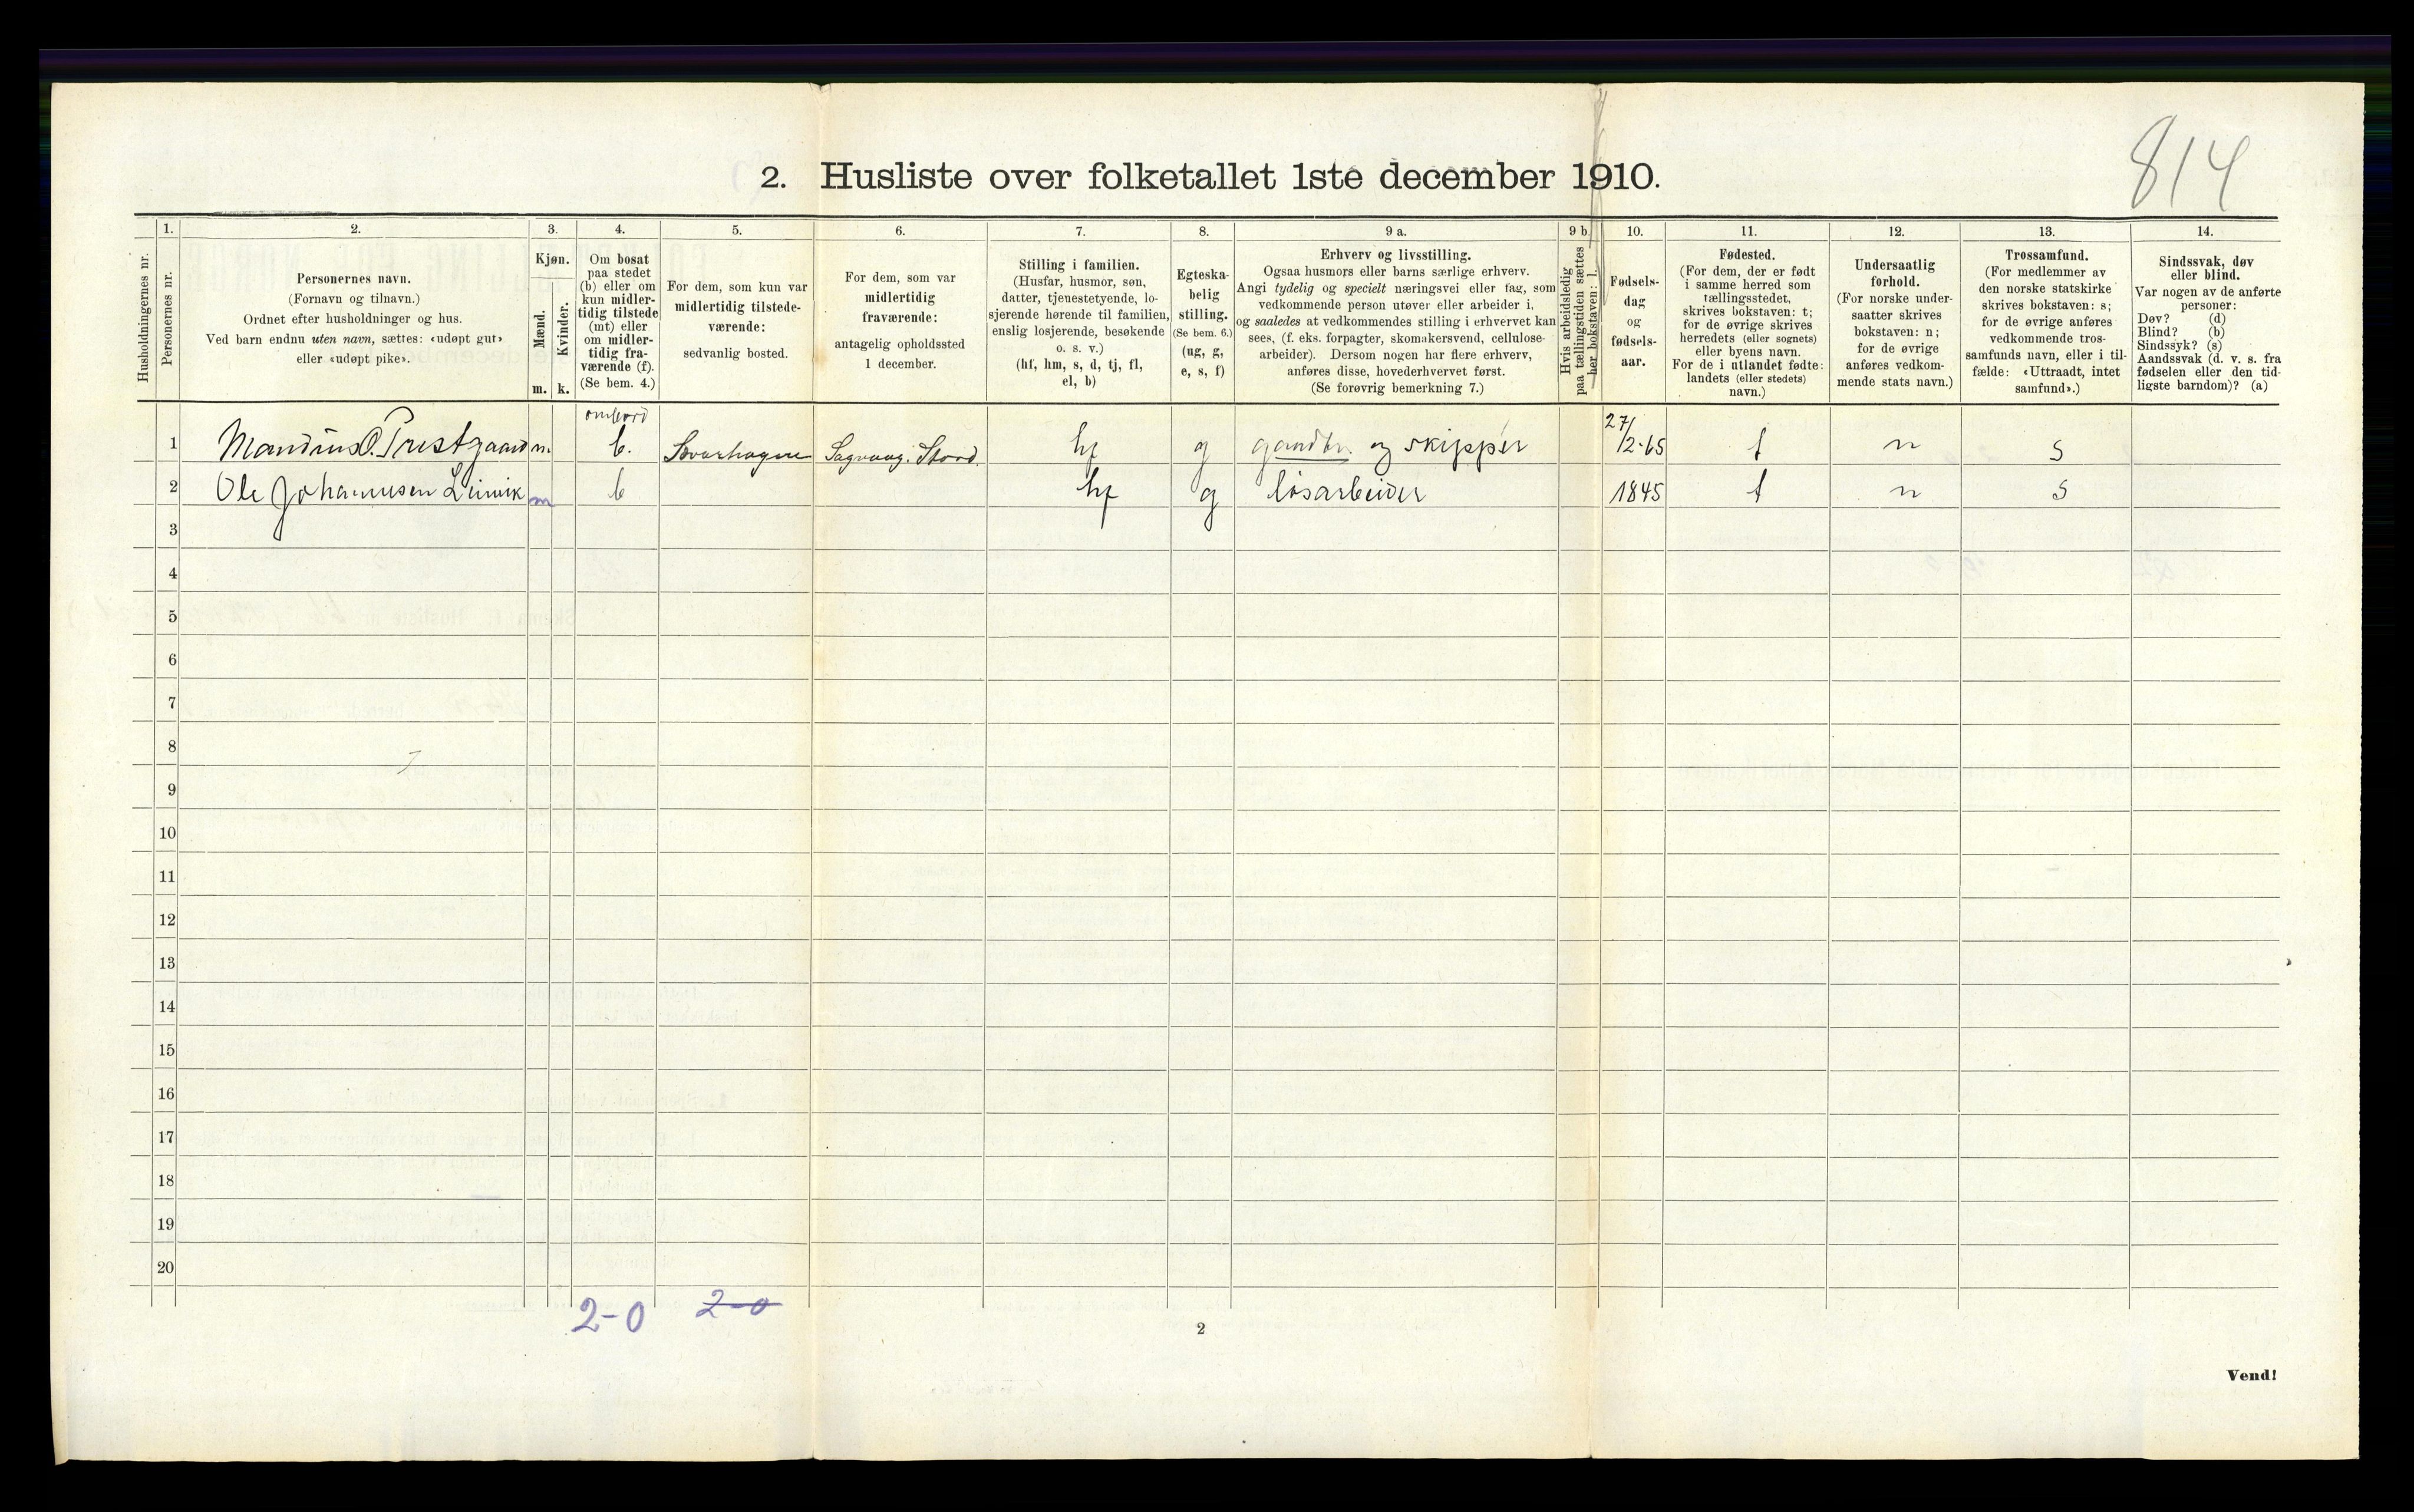 814
2. Husliste over folketallet 1ste december 1910.
1. 2. 3. 4. 5. 6. 7. 8. 9 a. 9 b. 10. 11. 12. 13. 14.
Husholdningernes nr.
Personernes nr.
Personernes navn.
(Fornavn og tilnavn.)
Ordnet efter husholdninger og hus.
Ved barn endnu uten navn, sættes: «udøpt gut»
eller «udøpt pike».
Kjøn.
Mænd.
Kvinder.
m. k.
Om bosat
paa stedet
(b) eller om
kun midler-
tidig tilstede
(mt) eller
om midler-
tidig fra-
værende (f).
(Se bem. 4.)
For dem, som kun var
midlertidig tilstede-
værende:
sedvanlig bosted.
For dem, som var
midlertidig
fraværende:
antagelig opholdssted
1 december.
Stilling i familien.
(Husfar, husmor, søn,
datter, tjenestetyende, lo-
sjerende hørende til familien,
enslig losjerende, besøkende
o. s. v.)
(hf, hm, s, d, tj, fl,
el, b)
Egteska-
belig
stilling.
(Se bem. 6.)
(ug, g,
e, s, f)
Erhverv og livsstilling.
Ogsaa husmors eller barns særlige erhverv.
Angi tydelig og specielt næringsvei eller fag, som
vedkommende person utøver eller arbeider i,
og saaledes at vedkommendes stilling i erhvervet kan
sees, (f. eks. forpagter, skomakersvend, cellulose-
arbeider). Dersom nogen har flere erhverv,
anføres disse, hovederhvervet først.
(Se forøvrig bemerkning 7.)
Hvis arbeidsledig
paa tællingstiden sættes
her bokstaven: l.
Fødsels-
dag
og
fødsels-
aar.
Fødested.
(For dem, der er født
i samme herred som
tællingsstedet,
skrives bokstaven: t;
for de øvrige skrives
herredets (eller sognets)
eller byens navn.
For de i utlandet fødte:
landets (eller stedets)
navn.)
Undersaatlig
forhold.
(For norske under-
saatter skrives
bokstaven: n;
for de øvrige
anføres vedkom-
mende stats navn.)
Trossamfund.
(For medlemmer av
den norske statskirke
skrives bokstaven: s;
for de øvrige anføres
vedkommende tros-
samfunds navn, eller i til-
fælde: «Uttraadt, intet
samfund».)
Sindssvak, døv
eller blind.
Var nogen av de anførte
personer:
Døv? (d)
Blind? (b)
Sindssyk? (s)
Aandssvak (d. v. s. fra
fødselen eller den tid-
ligste barndom)? (a)
ombord
1 Mandius O. Prestgaard m. b. Sagvaag. Stord. hf g gaardbr. og skipper 27/2-65 t n s
2 Ole Johannesen Leirvik m b hf g løsarbeider 1845 t n s
3
4
5
6
7
8
9
10
11
12
13
14
15
16
17
18
19
20
2-0 2-0
2
Vend!